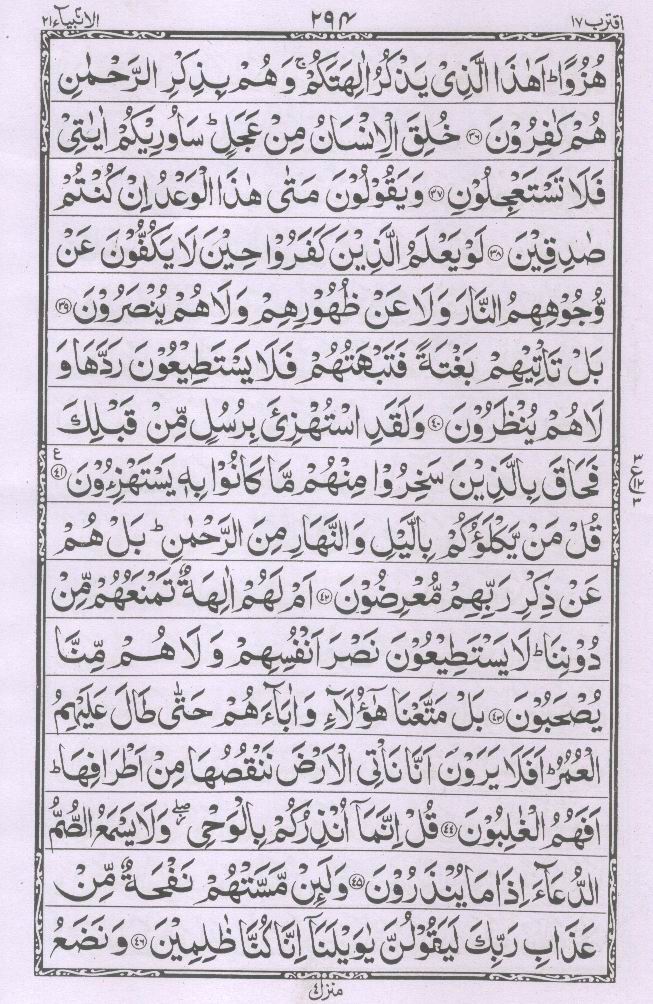 اقترب ١٧
٢٩٤
الانبیآء ٢١
هُزُوًا ؕ اَهٰذَا الَّذِیْ یَذْكُرُ اٰلِهَتَكُمْ ۚ وَ هُمْ بِذِكْرِ الرَّحْمٰنِ
هُمْ كٰفِرُوْنَ ﴿٣٦﴾ خُلِقَ الْاِنْسَانُ مِنْ عَجَلٍ ؕ سَاُورِیْكُمْ اٰیٰتِیْ
فَلَا تَسْتَعْجِلُوْنِ ﴿٣٧﴾ وَ یَقُوْلُوْنَ مَتٰی هٰذَا الْوَعْدُ اِنْ كُنْتُمْ
صٰدِقِیْنَ ﴿٣٨﴾ لَوْ یَعْلَمُ الَّذِیْنَ كَفَرُوْا حِیْنَ لَا یَكُفُّوْنَ عَنْ
وُّجُوْهِهِمُ النَّارَ وَ لَا عَنْ ظُهُوْرِهِمْ وَ لَا هُمْ یُنْصَرُوْنَ ﴿٣٩﴾
بَلْ تَاْتِیْهِمْ بَغْتَةً فَتَبْهَتُهُمْ فَلَا یَسْتَطِیْعُوْنَ رَدَّهَا وَ
لَا هُمْ یُنْظَرُوْنَ ﴿٤٠﴾ وَ لَقَدِ اسْتُهْزِئَ بِرُسُلٍ مِّنْ قَبْلِكَ
فَحَاقَ بِالَّذِیْنَ سَخِرُوْا مِنْهُمْ مَّا كَانُوْا بِهٖ یَسْتَهْزِءُوْنَ ﴿٤١﴾ ع
قُلْ مَنْ یَّكْلَؤُكُمْ بِالَّیْلِ وَ النَّهَارِ مِنَ الرَّحْمٰنِ ؕ بَلْ هُمْ
عَنْ ذِكْرِ رَبِّهِمْ مُّعْرِضُوْنَ ﴿٤٢﴾ اَمْ لَهُمْ اٰلِهَةٌ تَمْنَعُهُمْ مِّنْ
دُوْنِنَا ؕ لَا یَسْتَطِیْعُوْنَ نَصْرَ اَنْفُسِهِمْ وَ لَا هُمْ مِّنَّا
یُصْحَبُوْنَ ﴿٤٣﴾ بَلْ مَتَّعْنَا هٰۤؤُلَآءِ وَ اٰبَآءَهُمْ حَتّٰی طَالَ عَلَیْهِمُ
الْعُمُرُ ؕ اَفَلَا یَرَوْنَ اَنَّا نَاْتِی الْاَرْضَ نَنْقُصُهَا مِنْ اَطْرَافِهَا ؕ
اَفَهُمُ الْغٰلِبُوْنَ ﴿٤٤﴾ قُلْ اِنَّمَاۤ اُنْذِرُكُمْ بِالْوَحْیِ ۖ وَ لَا یَسْمَعُ الصُّمُّ
الدُّعَآءَ اِذَا مَا یُنْذَرُوْنَ ﴿٤٥﴾ وَ لَئِنْ مَّسَّتْهُمْ نَفْحَةٌ مِّنْ
عَذَابِ رَبِّكَ لَیَقُوْلُنَّ یٰوَیْلَنَاۤ اِنَّا كُنَّا ظٰلِمِیْنَ ﴿٤٦﴾ وَ نَضَعُ
منزل ٤